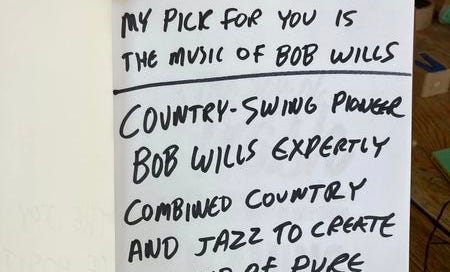 MY PICK FOR YOU IS
THE MUSIC OF BOB WILLS
COUNTRY-SWING PIONEER
BOB WILLS EXPERTLY
COMBINED COUNTRY
AND JAZZ TO CREATE
OF PURE